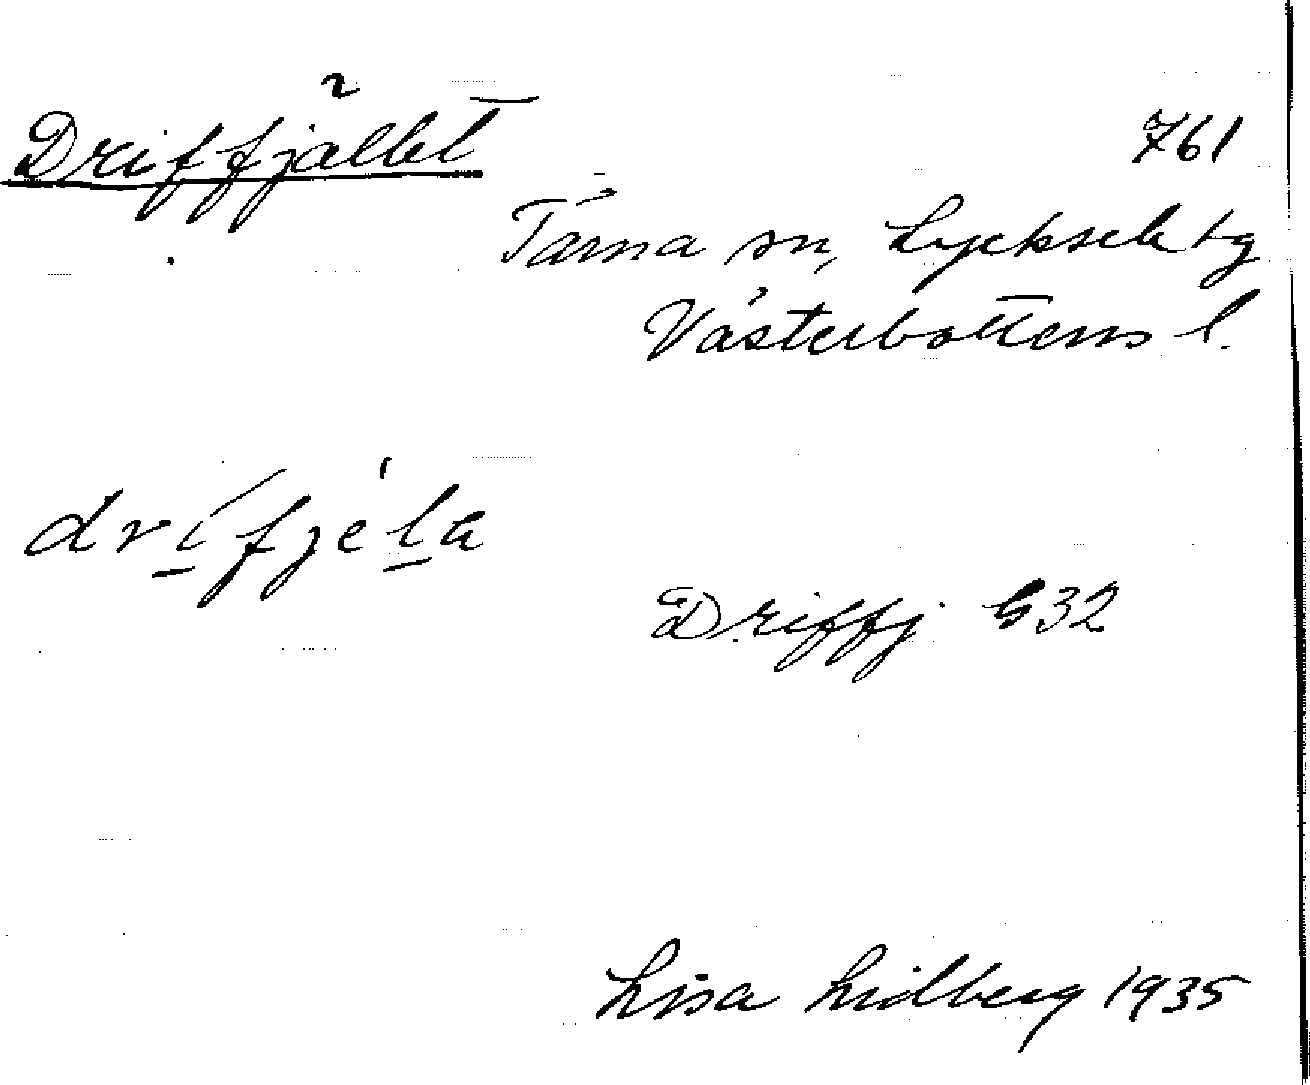 Driffjället
761
Tärna sn, Lycksele tg
Västerbottens l.
drífjéla
Driffj. G32
Lisa Lidberg 1935